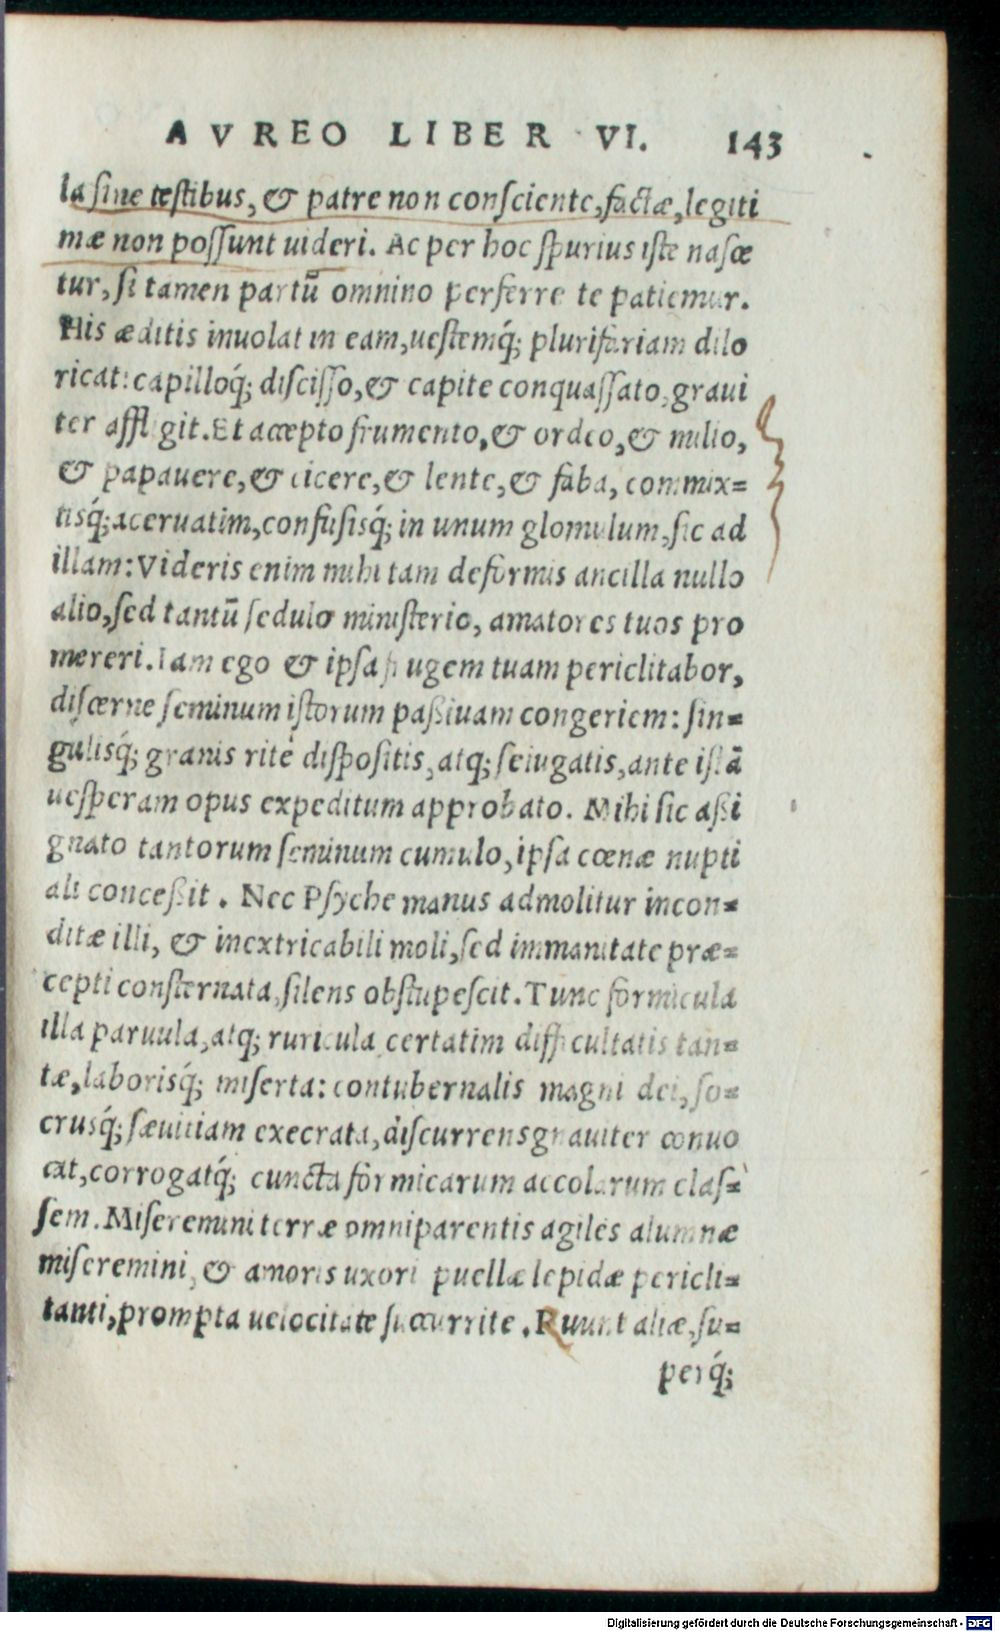 AVREO LIBER VI. 143
la sine testibus, & patre non consciente, factæ, legiti
mæ non possunt uideri. Ac per hoc spurius iste nasce
tur, si tamen partū omnino perferre te patiemur.
His æditis inuolat in eam, uestemq́; plurifariam dilo
ricat: capilloq́; discisso, & capite conquassato, graui
ter affligit. Et accepto frumento, & ordeo, & milio,
& papauere, & cicere, & lente, & faba, commix=
tisq́; aceruatim, confusisq́; in unum glomulum, sic ad
illam: Videris enim mihi tam deformis ancilla nullo
alio, sed tantū sedulo ministerio, amatores tuos pro
mereri. Iam ego & ipsa frugem tuam periclitabor,
discerne seminum istorum paßiuam congeriem: sin=
gulisq́; granis ritè dispositis, atq; seiugatis, ante istā
uesperam opus expeditum approbato. Mihi sic aßi
gnato tantorum seminum cumulo, ipsa cœnæ nupti
ali conceßit. Nec Psyche manus admolitur incon=
ditæ illi, & inextricabili moli, sed immanitate præ=
cepti consternata, silens obstupescit. Tunc formicula
illa paruula, atq; ruricula certatim difficultatis tan=
tæ, laborisq́; miserta: contubernalis magni dei, so=
crusq́; sæuitiam execrata, discurrens gnauiter conuo
cat, corrogatq́; cuncta formicarum accolarum clas=
sem. Miseremini terræ omniparentis agiles alumnæ
miseremini, & amoris uxori puellæ lepidæ pericli=
tanti, prompta uelocitate succurrite. Ruunt aliæ, su=
perq́;
Digitalisierung gefördert durch die Deutsche Forschungsgemeinschaft - DFG